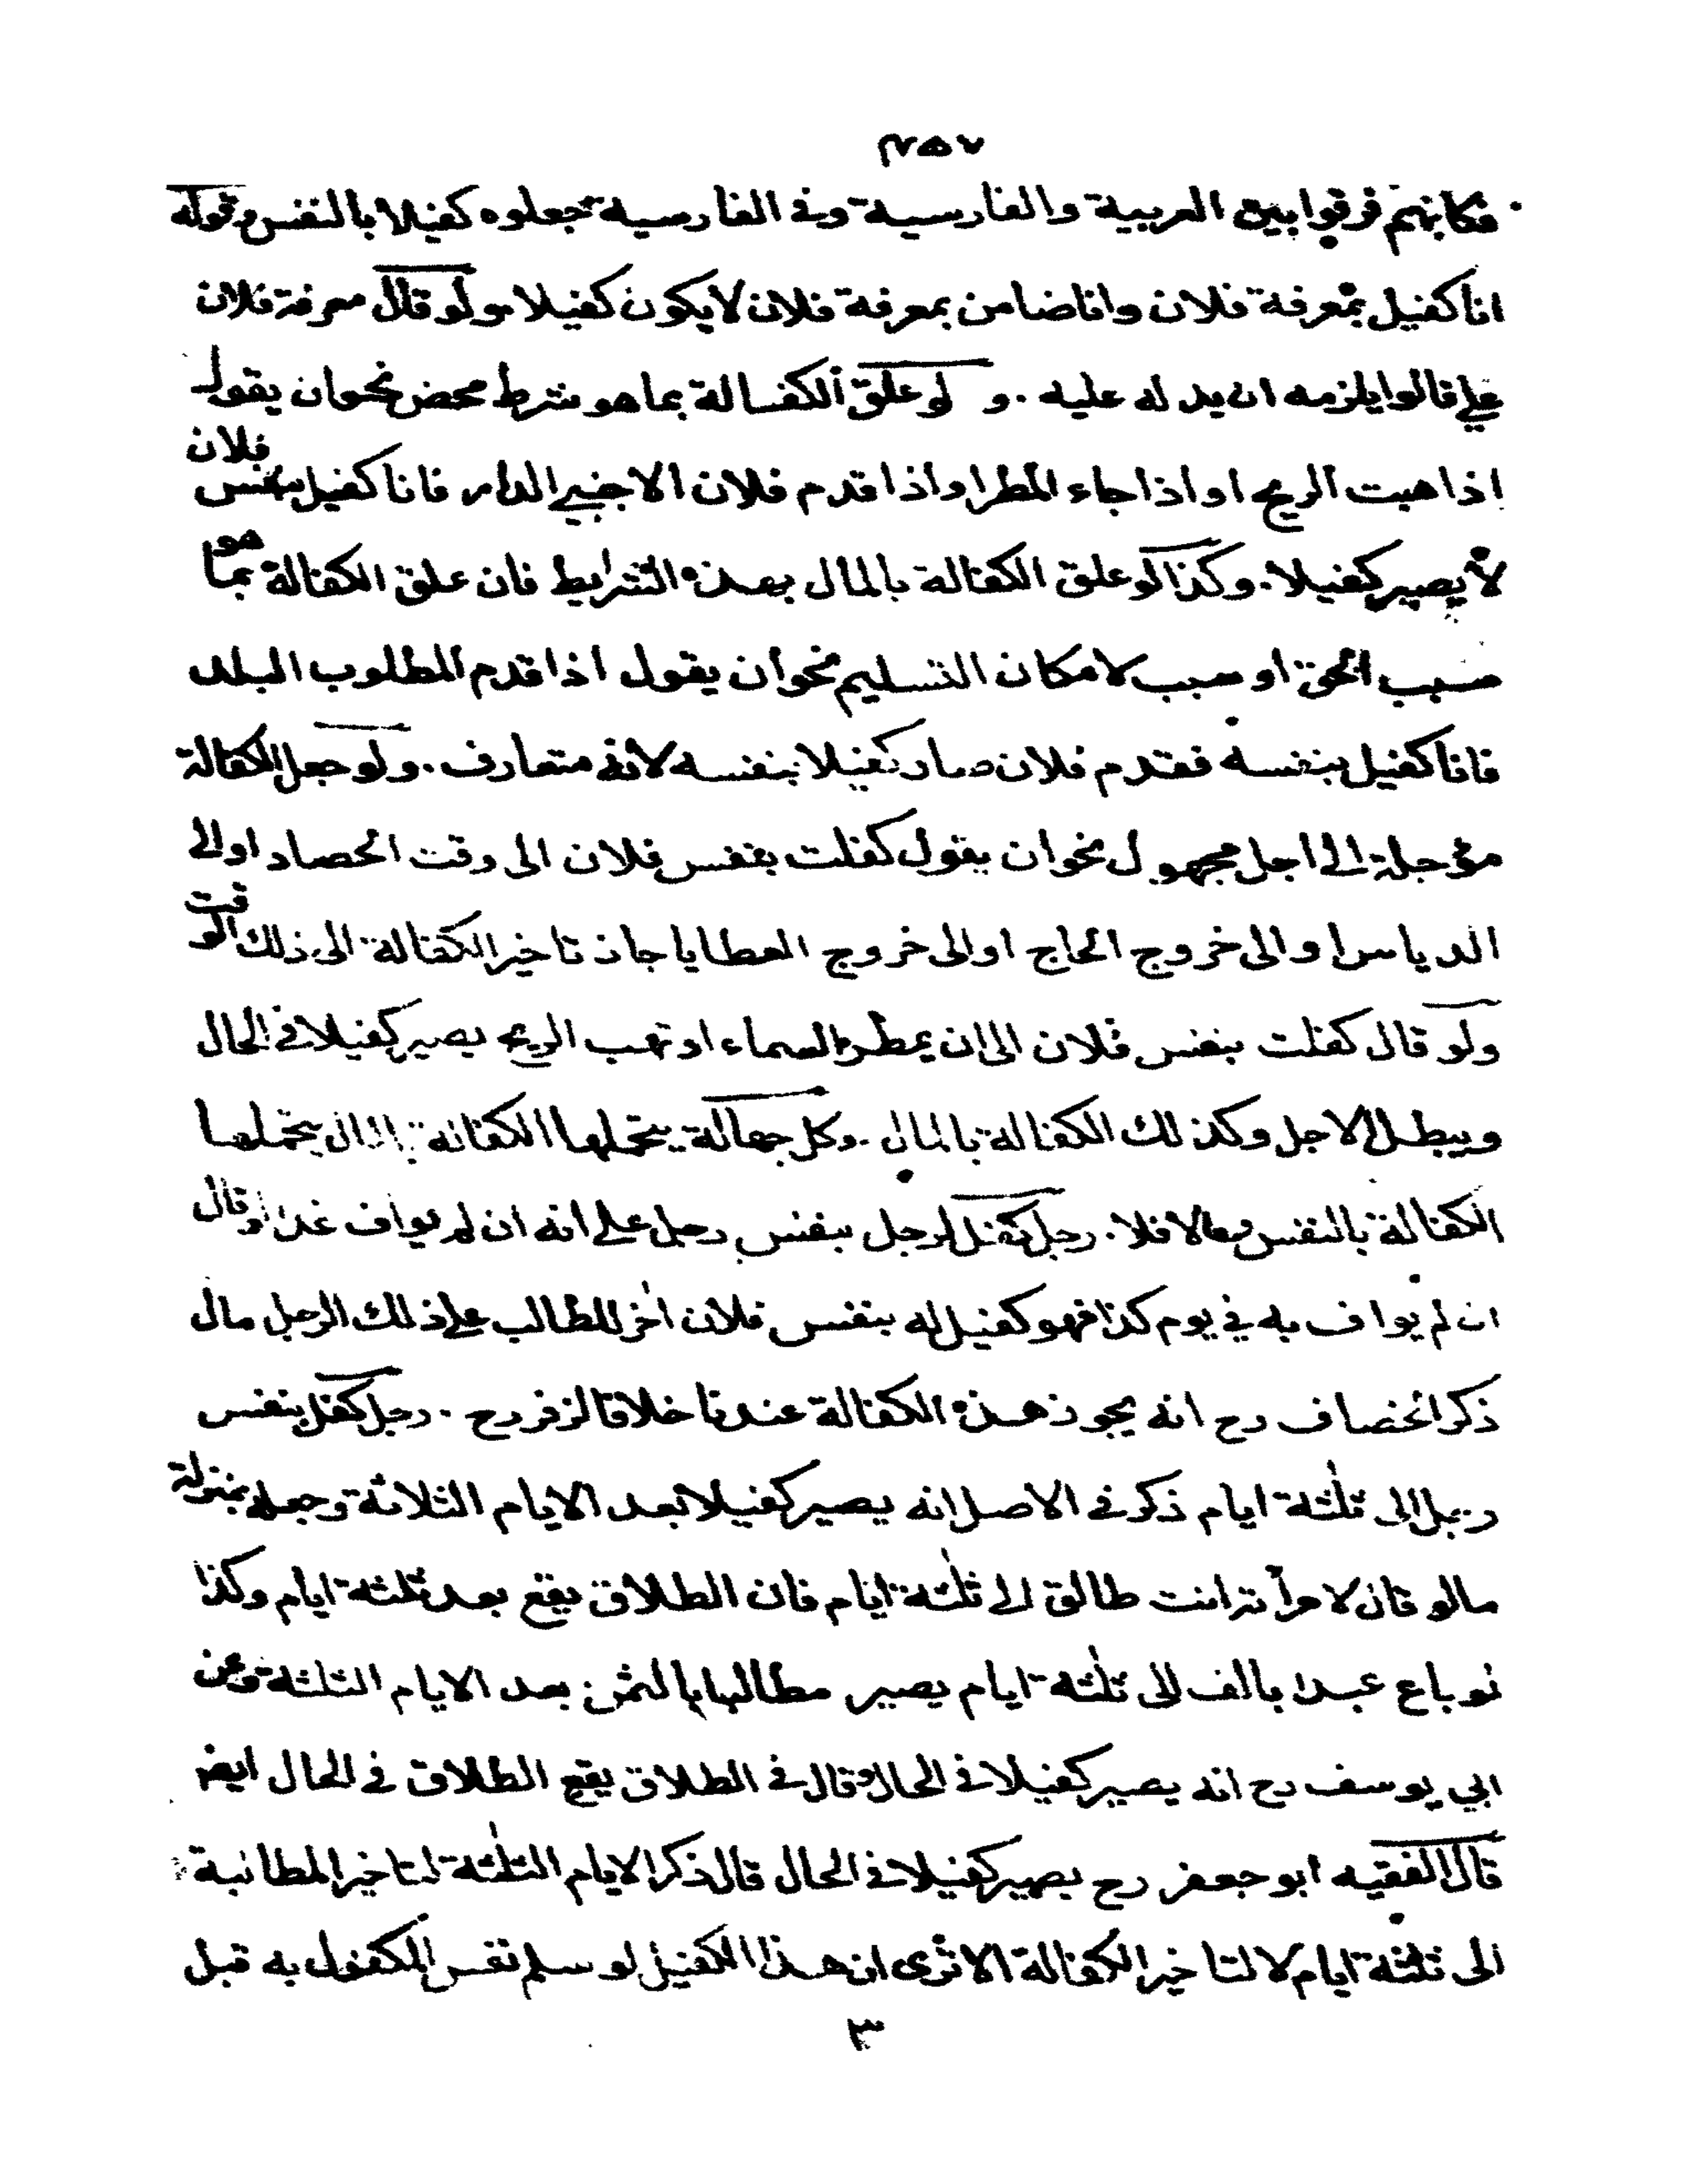 فكانهم فرقوا بين العربية والفارسية وفى الفارسية جعلوه كفيلا بالنفس وبقوله
انا كفيل بمعرفة فلان وانا ضامن بمعرفة فلان لا يكون كفيلا ولو قال معرفة فلان
علي قالوا يلزمه ان يدله عليه . ولو علق الكفالة بما هو شرط محض نحو ان يقول
اذا هبت الريح او اذا جاء المطر او اذا قدم فلان الاجنبي الدار فانا كفيل بنفس فلان
لا يصير كفيلا . وكذا لو علق الكفالة بالمال بهذه الشرايط فان علق الكفالة بما هو
سبب الحق او سبب لامكان التسليم نحو ان يقول اذا قدم المطلوب البلد
فانا كفيل بنفسه فقدم فلان صار كفيلا بنفسه لانه متعارف . ولو جعل الكفالة
مؤجلة الى اجل مجهول نحو ان يقول كفلت بنفس فلان الى وقت الحصاد او الى
الدياس او الى خروج الحاج او الى خروج العطايا جاز تاخير الكفالة الى ذلك الوقت
ولو قال كفلت بنفس فلان الى ان يمطر السماء او تهب الريح يصير كفيلا فى الحال
ويبطل الاجل وكذلك الكفالة بالمال . وكل جهالة يتحملها الكفالة بالمال يتحملها
الكفالة بالنفس ومالا فلا . رجل كفل لرجل بنفس رجل على انه ان لم يواف غدا او قال
ان لم يواف به في يوم كذا فهو كفيل له بنفس فلان اخر للطالب على ذلك الرجل مال
ذكر الخصاف رح انه يجوز هذه الكفالة عندنا خلافا لزفر رح . رجل كفل بنفس
رجل الى ثلثة ايام ذكر فى الاصل انه يصير كفيلا بعد الايام الثلاثة وجعله بمنزلة
مالو قال لامرأته انت طالق الى ثلثة ايام فان الطلاق يقع بعد ثلثة ايام وكذا
لو باع عبدا بالف الى ثلثة ايام يصير مطالبا بالثمن بعد الايام الثلثة وعن
ابي يوسف رح انه يصير كفيلا فى الحال وقال فى الطلاق يقع الطلاق فى الحال ايض
قال الفقيه ابو جعفر رح يصير كفيلا فى الحال قال ذكر الايام الثلثة لتاخير المطالبة
الى ثلثة ايام لا لتاخير الكفالة الا ترى ان هذا الكفيل لو سلم نفس المكفول به قبل
٣